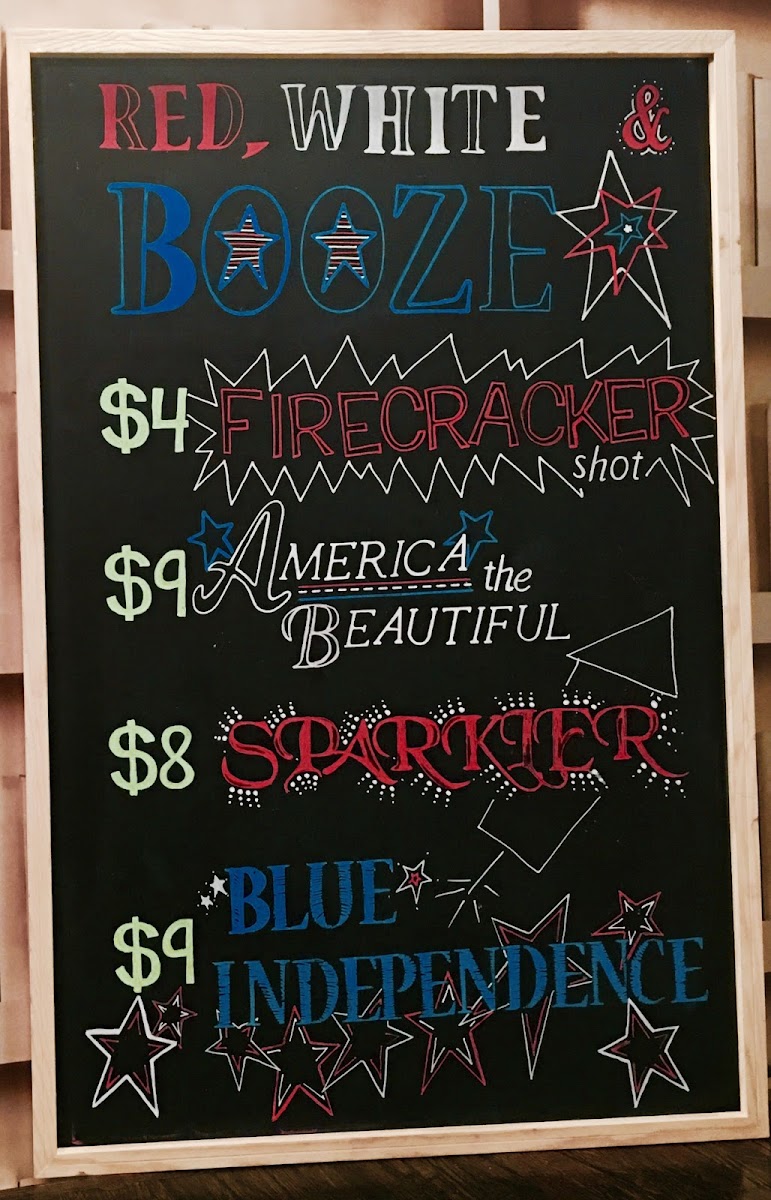 RED, WHITE &
BOOZE
$4 FIRECRACKER
shot
$9 AMERICA the
BEAUTIFUL
$8 SPARKLER
$9 BLUE
INDEPENDENCE